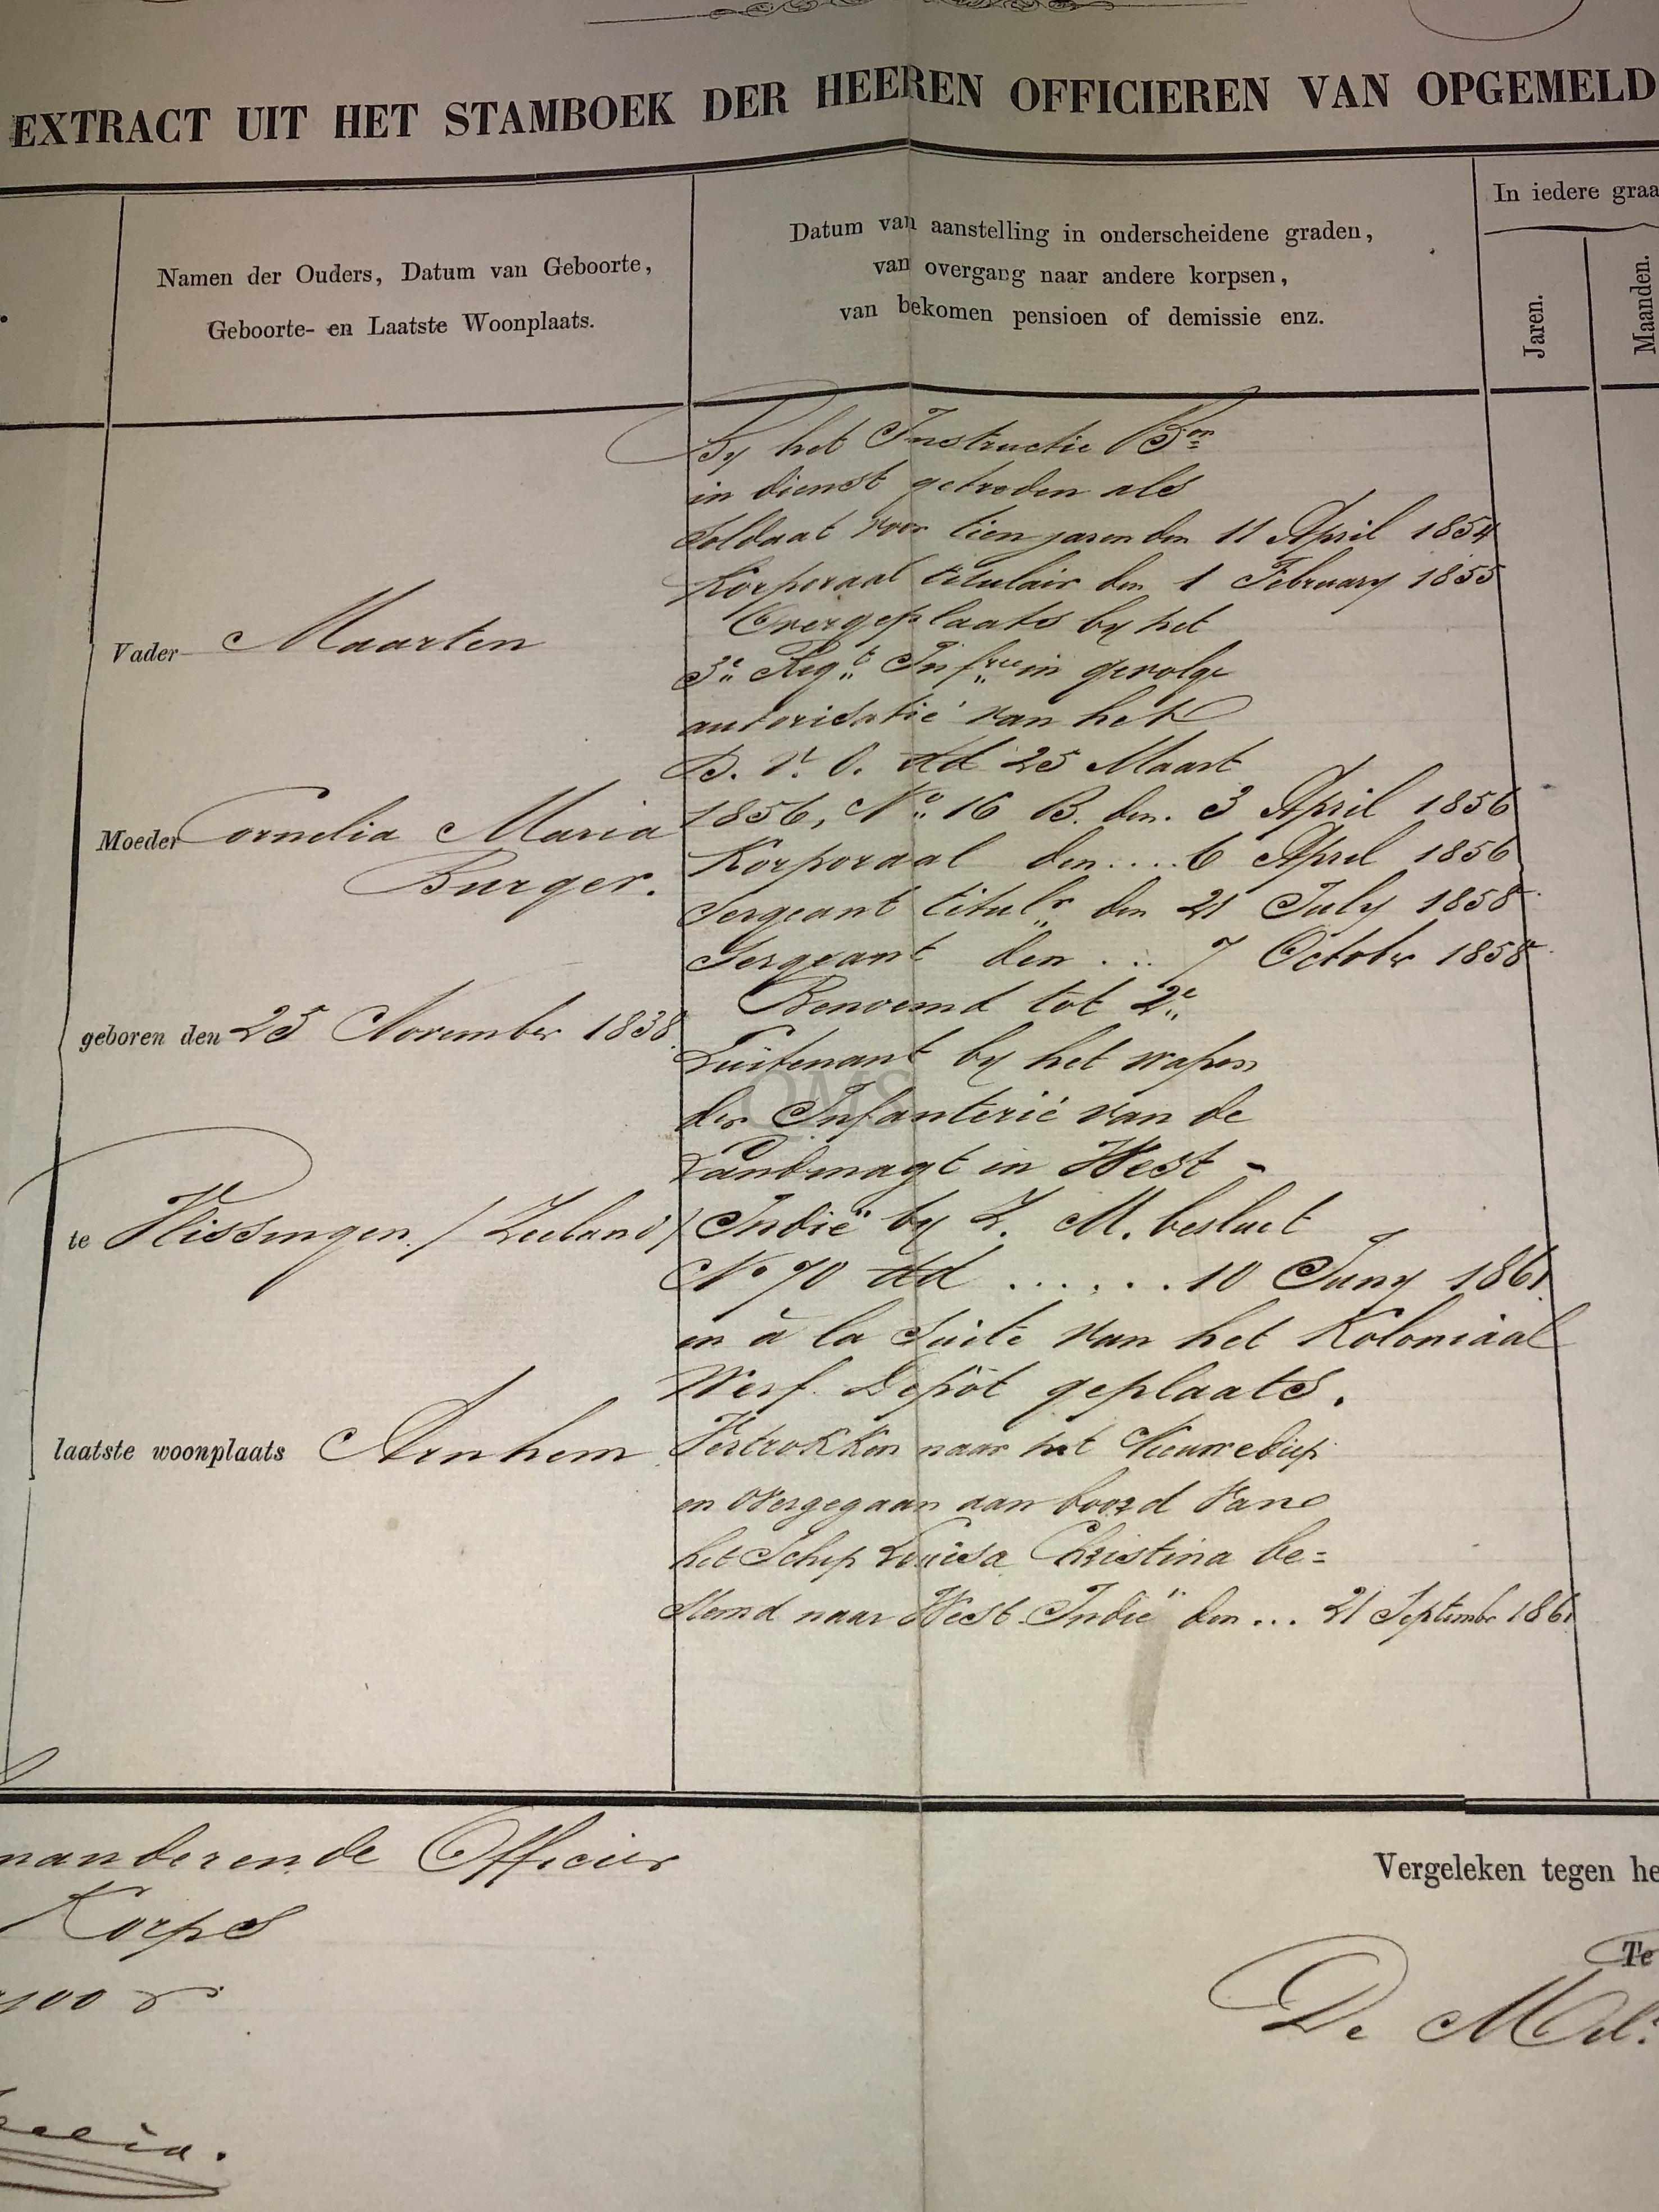 EXTRACT UIT HET STAMBOEK DER HEEREN OFFICIEREN VAN OPGEMELD
Namen der Ouders, Datum van Geboorte,
Geboorte- en Laatste Woonplaats.
Datum van aanstelling in onderscheidene graden,
van overgang naar andere korpsen,
van bekomen pensioen of demissie enz.
In iedere graa
Jaren.
Maanden.
Vader Maarten
Moeder Cornelia Maria
Burger.
geboren den 25 November 1838.
te Vlissingen. / Zeeland /
laatste woonplaats Arnhem
By het Instructie Bon
in dienst getreden als
Soldaat voor tien jaren den 11 April 1854
Korporaal titulair den 1 February 1855
Overgeplaats by het
3e Regt Infrie in gevolge
autorisatie van het
D. v. O. dd 25 Maart
1856, No 16 B. den. 3 April 1856
Korporaal den .... 6 April 1856
Sergeant titulr den 21 July 1858
Sergeant den ... 7 October 1858
Benoemd tot 2e
Luitenant by het wapen
der Infanterie van de
Landmagt in West-
Indië by Z. M. besluit
No 70 dd ...... 10 Juny 1861
en à la Suite van het Koloniaal
Werf. Depôt geplaats.
Vertrokken naar het Nieuwediep
en overgegaan aan boord van
het Schip Louisa Christina be=
stemd naar West Indië den ... 21 September 1861
QMS
manderende Officier
Korps
Vergeleken tegen he
Te
De